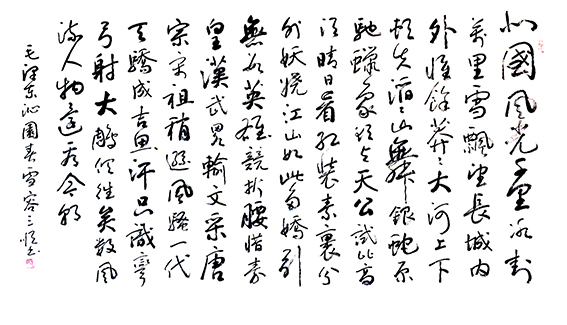 北國風光千里冰封
萬里雪飄望長城内
外惟餘莽〻大河上下
頓失滔〻山舞銀蛇原
馳蠟象欲与天公試比高
須晴日看紅裝素裹分
外妖嬈江山如此多嬌引
無數英雄競折腰惜秦
皇漢武略輸文采唐
宗宋祖稍遜風騷一代
天驕成吉思汗只識彎
弓射大鵰俱往矣數風
流人物還看今朝
毛澤東沁園春雪